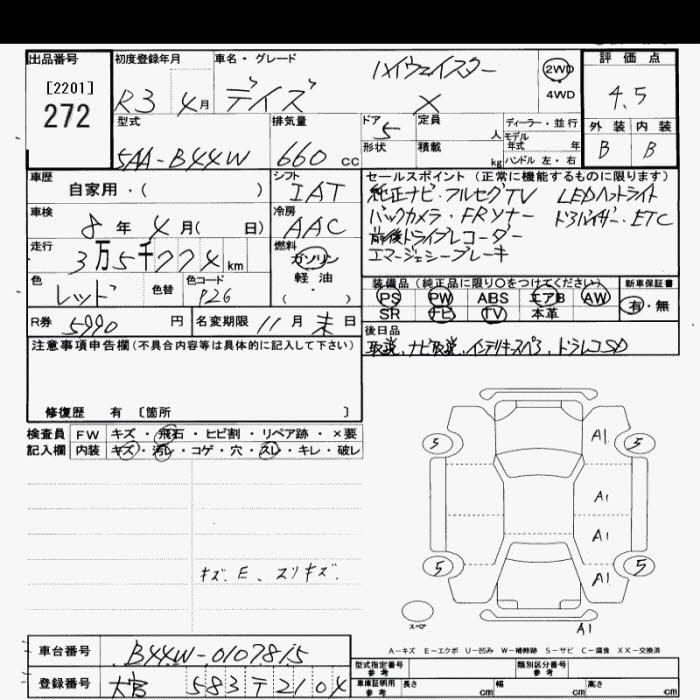 出品番号
[2201]
272
初度登録年月
R3 4月
車名・グレード
デイズ
ハイウェイスター
X
2WD
4WD
評価点
4.5
外装 内装
B B
型式
5AA-B44W
排気量
660 cc
ドア
5
定員
人
形状
積載
kg
ディーラー・並行
モデル
年式 年
ハンドル 左・右
車歴
自家用・( )
シフト
IAT
車検
8年 4月( 日)
冷房
AAC
走行
3万5千774km
燃料
ガソリン
軽油
( ・ )
色
レッド
色替
色コード
P26
R券
5990円
名変期限 11月末日
セールスポイント (正常に機能するものに限ります)
純正ナビ・フルセグTV LEDヘットライト
バックカメラ・FRソナー ドアバイザー・ETC
前後ドライブレコーダー
エマージェンシーブレーキ
装備品 (純正品に限り○をつけてください)
新車保証書
PS PW ABS エアB AW
SR ナビ TV 本革
有・無
後日品
取説、ナビ取説、インテリキースペア、ドラレコSD
注意事項申告欄(不具合内容等は具体的に記入して下さい)
修復歴 有 〔箇所 〕
検査員
記入欄
FW キズ・飛石・ヒビ割・リペア跡・×要
内装 キズ・汚レ・コゲ・穴・スレ・キレ・破レ
キズ、E、スリキズ.
5 A1 5
A1
A1
5 A1 5
スペア
A1
A-キズ E-エクボ U-凹み W-補修跡 S-サビ C-腐食 XX-交換済
車台番号
B44W-0107815
登録番号
大宮 583 テ 2104
型式指定番号
参考
類別区分番号
参考
車庫証明用
参考
長さ cm
幅 cm
高さ cm